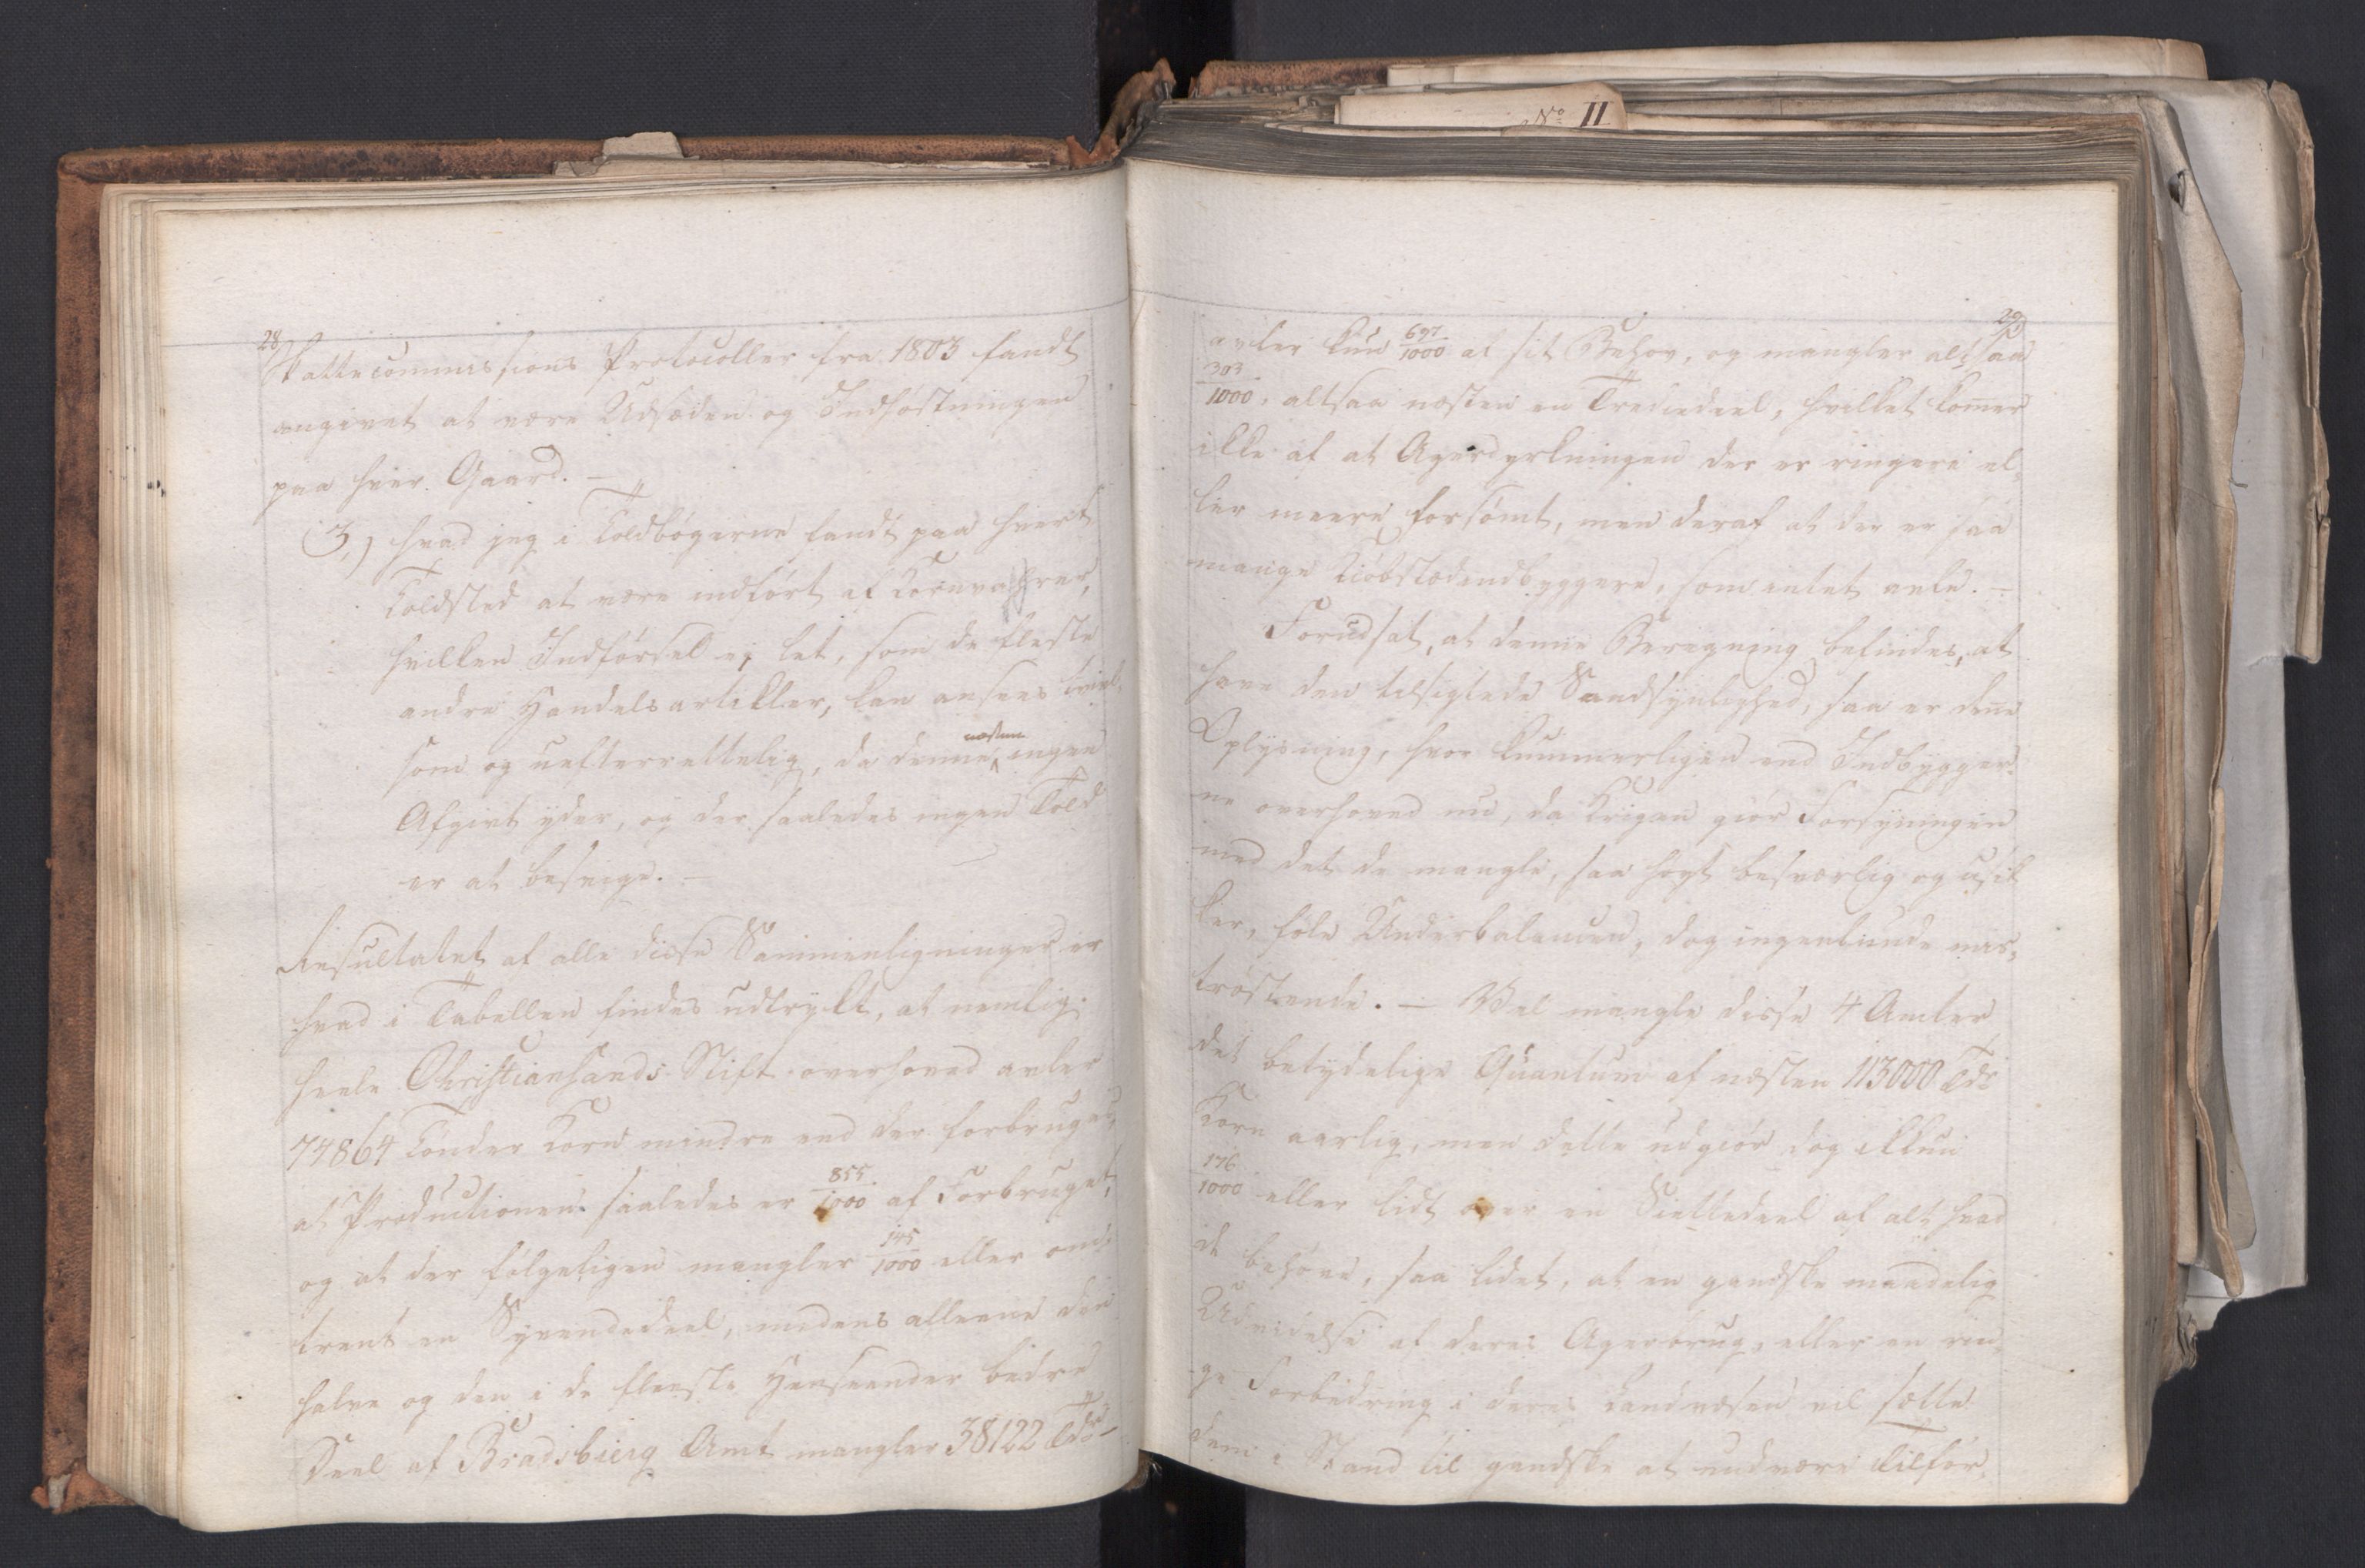 No II
28
Skattecommissions Protocoller fra 1803 fandt
angivet at være Udsæden og Indhøstningen
paa hver Gaard. —
3,) hvad jeg i Toldbøgerne fandt paa hvert
Toldsted at være indført af Kornvahrer,
hvilken Indførsel ej let, som de fleste
andre Handelsartikler, kan ansees tvivl,
som og uefterrettelig, da denne næsten ingen
Afgivt yder, og der saaledes ingen Told
er at besvige. —
Resultatet af alle disse Sammenligninger er
hvad i Tabellen findes udtrykt, at nemlig
heele Christiansands Stift overhoved avler
74864 Tønder Korn mindre end der forbruges,
at Productionen saaledes er 855/1000 af Forbruget,
og at der følgeligen mangler 145/1000 eller om-
trent en Syvendedeel, medens alleene den
halve og den i de fleeste Henseender bedre
Deel af Bradsbierg Amt mangler 38122 Tdr —
29
avler kun 697/1000 af sit Behov, og mangler altsaa
303/1000, altsaa næsten en Trediedeel, hvilket komer
ikke af at Agerdyrkningen der er ringere el,
ler meere forsømt, men deraf at der er saa
mange Kiøbstædindbyggere, som intet avle. —
Forudsat, at denne Beregning befindes, at
have den tilsigtede Sandsynlighed, saa er dene
Oplysning, hvor kummerligen end Indbygger-
ne overhoved nu, da Krigen giør Forsyningen
med det de mangle, saa høyt besværlig og usik
ker, føle Underbalancen, dog ingenlunde mis,
trøstende. — Vel mangle disse 4 Amter
det betydelige Quantum af næsten 113000 Tdr
Korn aarlig, men dette udgiør dog ikkun
176/1000 eller lidt over en Siettedeel af alt hvad
de behøve, saa lidet, at en gandske maadelig
Udvidelse af deres Agerbrug, eller en rin,
ge Forbedring i deres Landvæsen vil sætte
dem i Stand til gandske at undvære Tilfør,